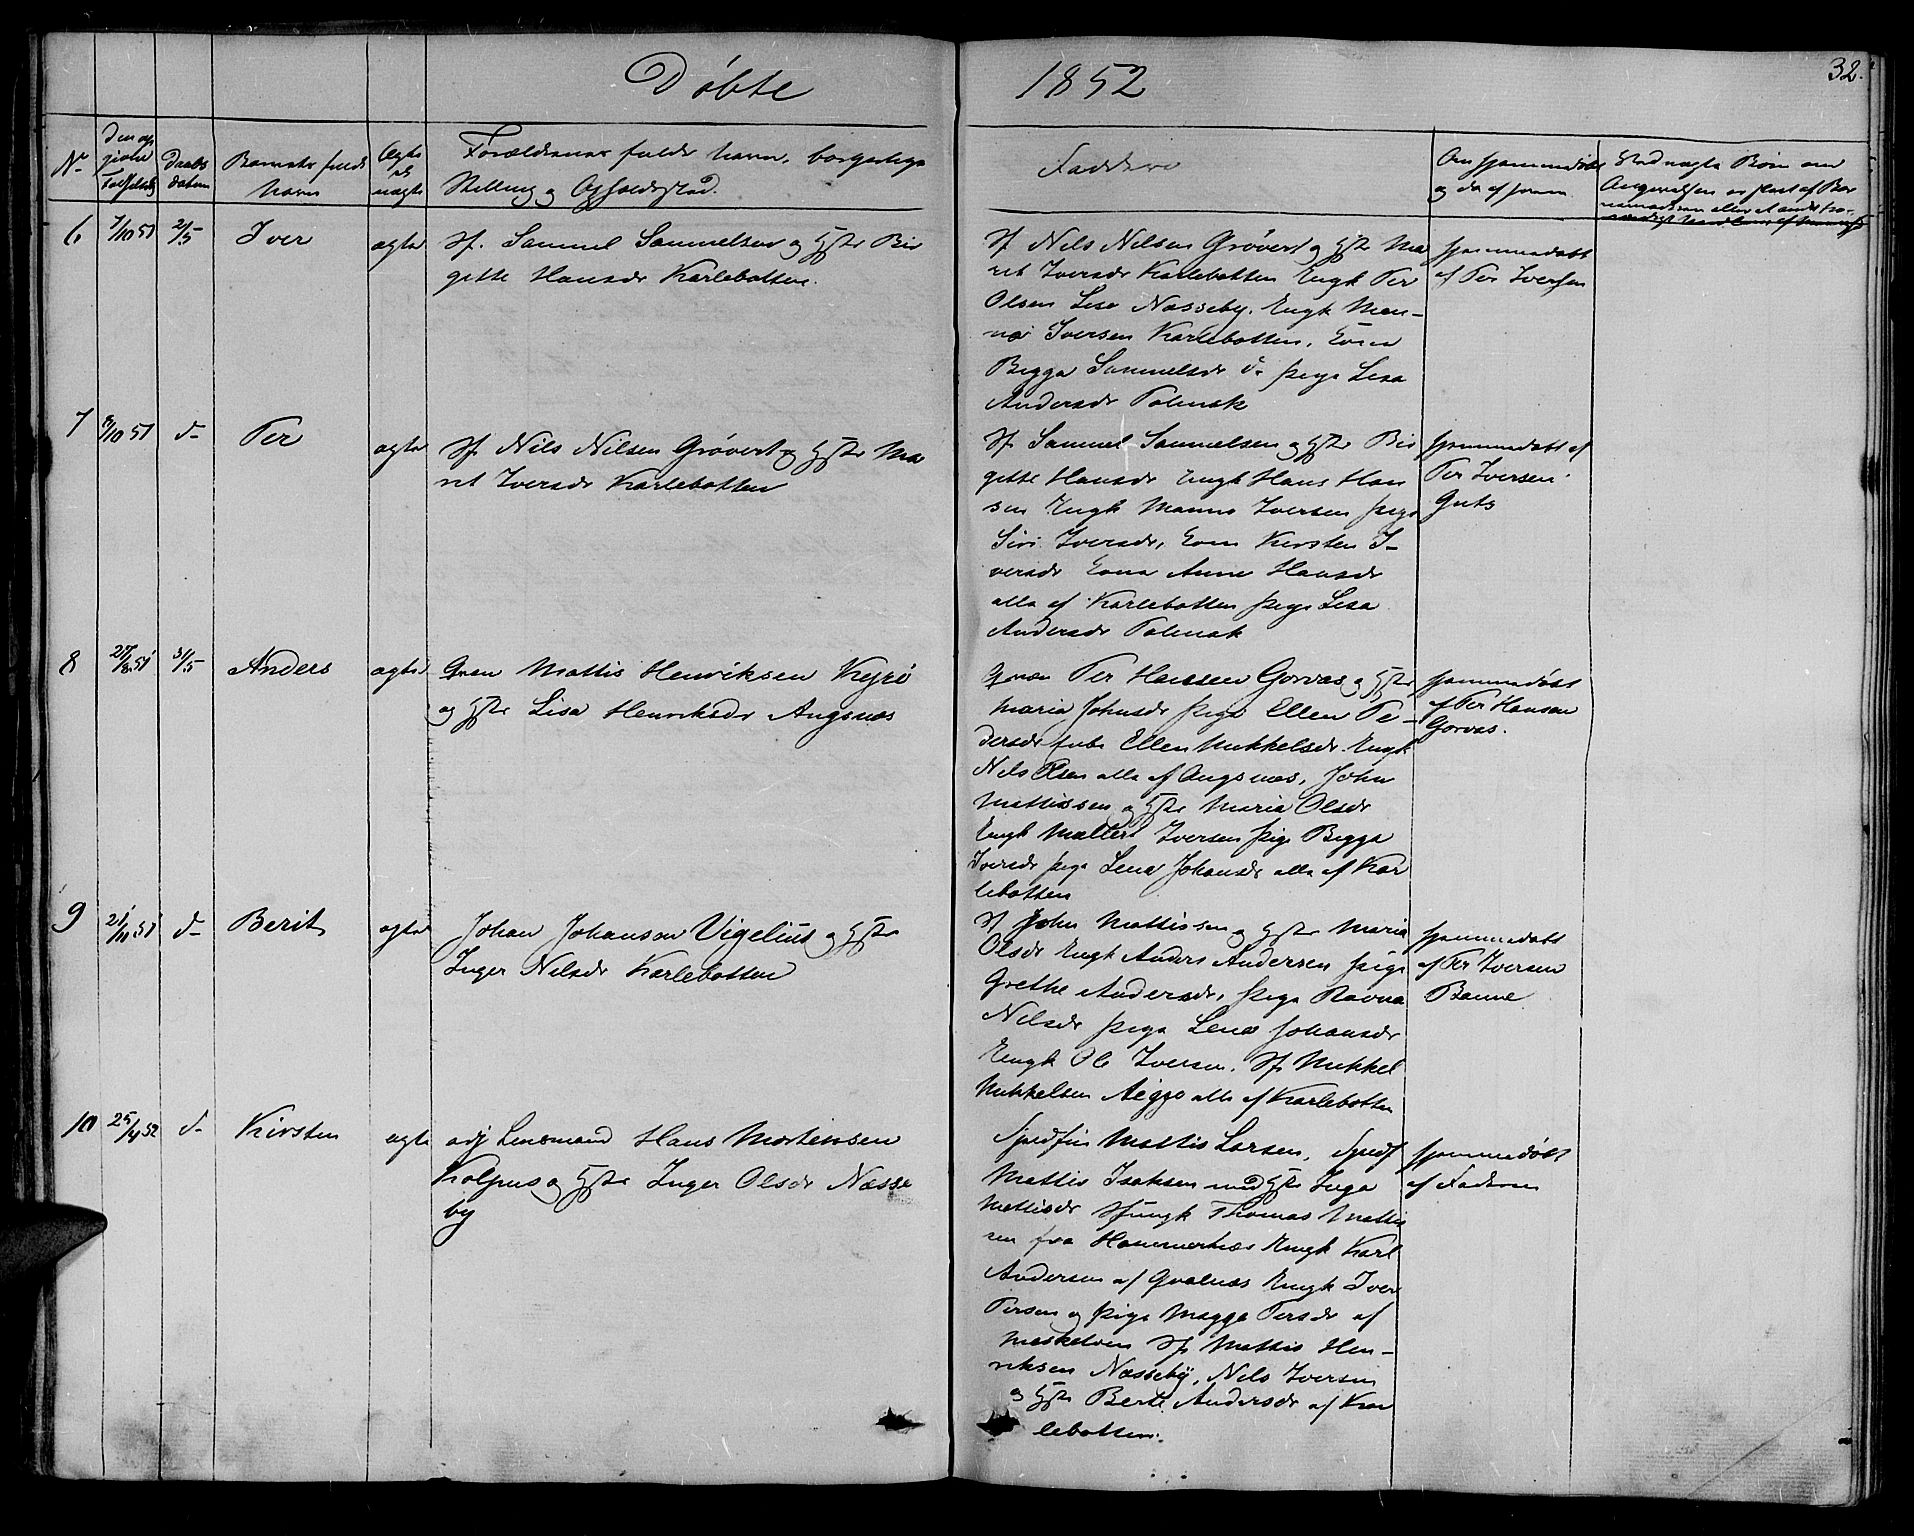 Døbte 1852
32.
No
Daabs
datum
Barnets fulde
Navn
Ægte
el
uægte
Forældrenes fulde Navn, borgerlige
Stilling og Opholdssted.
Faddere
Om hjemmedøbt
og da af hvem
6 7/10 51 2/5 Iver ægte
Sf. Samuel Samuelsen og Hstr Bir
gitte Hansdr Karlebotten.
Sf Nils Nilsen Grøvert og Hstr Ma
ret Iversdr Karlebotten Ungk Per
Olsen Lisa Næsseby. Ungk Man-
na Iversen Karlebotten, Kona
Bigga Samuelsdr do Pige Lisa
Andersdr Polmak
hjemmedøbt
af Per Iversen
7 8/10 51 do Per ægte
Sf. Nils Nilsen Grøvert og Hstr Ma
ret Iversdr Karlebotten
Sf. Samuel Samuelsen og Hstr Bir
gitte Hansdr Ungk Hans Han
sen Ungk Manna Iversen Pige
Siri Iversdr, Kona Kirsten I-
versdr Kona Anna Hansdr
alle af Karlebotten Pige Lisa
Andersdr Polmak
hjemmedøbt af
Per Iversen
8 27/8 51 3/5 Anders ægte
Qvæn Mattis Henriksen Kejri
og Hstr Lisa Henriksdr Angsnæs
Qvæn Per Hansen Gorvas og Hstr
Maria Johnsdr Pige Ellen Pe-
dersdr Ellen Mikkelsdr. Ungk
Nils Olsen alle af Angsnæs, John
Mattissen og Hstr Maria Olsdr
Ungk Iversen Pige Bigga
Iversdr Pige Lena Johansdr alle af Kar
lebotten
hjemmedøbt
af Per Hansen
Gorvas.
9 21/11 51 do Berit ægte
Johan Johansen Vigelius og Hstr
Inger Nilsdr Karlebotten
Sf John Mattissen og Hstr Maria
Olsdr Ungk Anders Andersen Pige
Grethe Andersdr, Pige Ravna
Nilsdr Pige Lena Johansdr
Ungk Ole Iversen. Sf Mikkel
Mikkelsen alle af Karlebotten
hjemmedøbt
af Per Iversen
Banne
10 25/4 52 do Kirsten ægte
adj Lensmand Hans Mortensen
Kolpus og Hstr Inger Olsdr Næsse
by
Mattis Larsen,
Mattis Isaksen med Hstr Inga
Mattisdr Thomas Mattis
sen fra Hammernæs Ungk Karl
Andersen af Gvalnæs Ungk Iver
Persen og Pige Magga Persdr af
Meskelven Sf Mattis Hen-
riksen Næsseby, Nils Iversen
og Hstr Berit Andersdr af Kar
lebotten.
hjemmedøbt
af Faderen